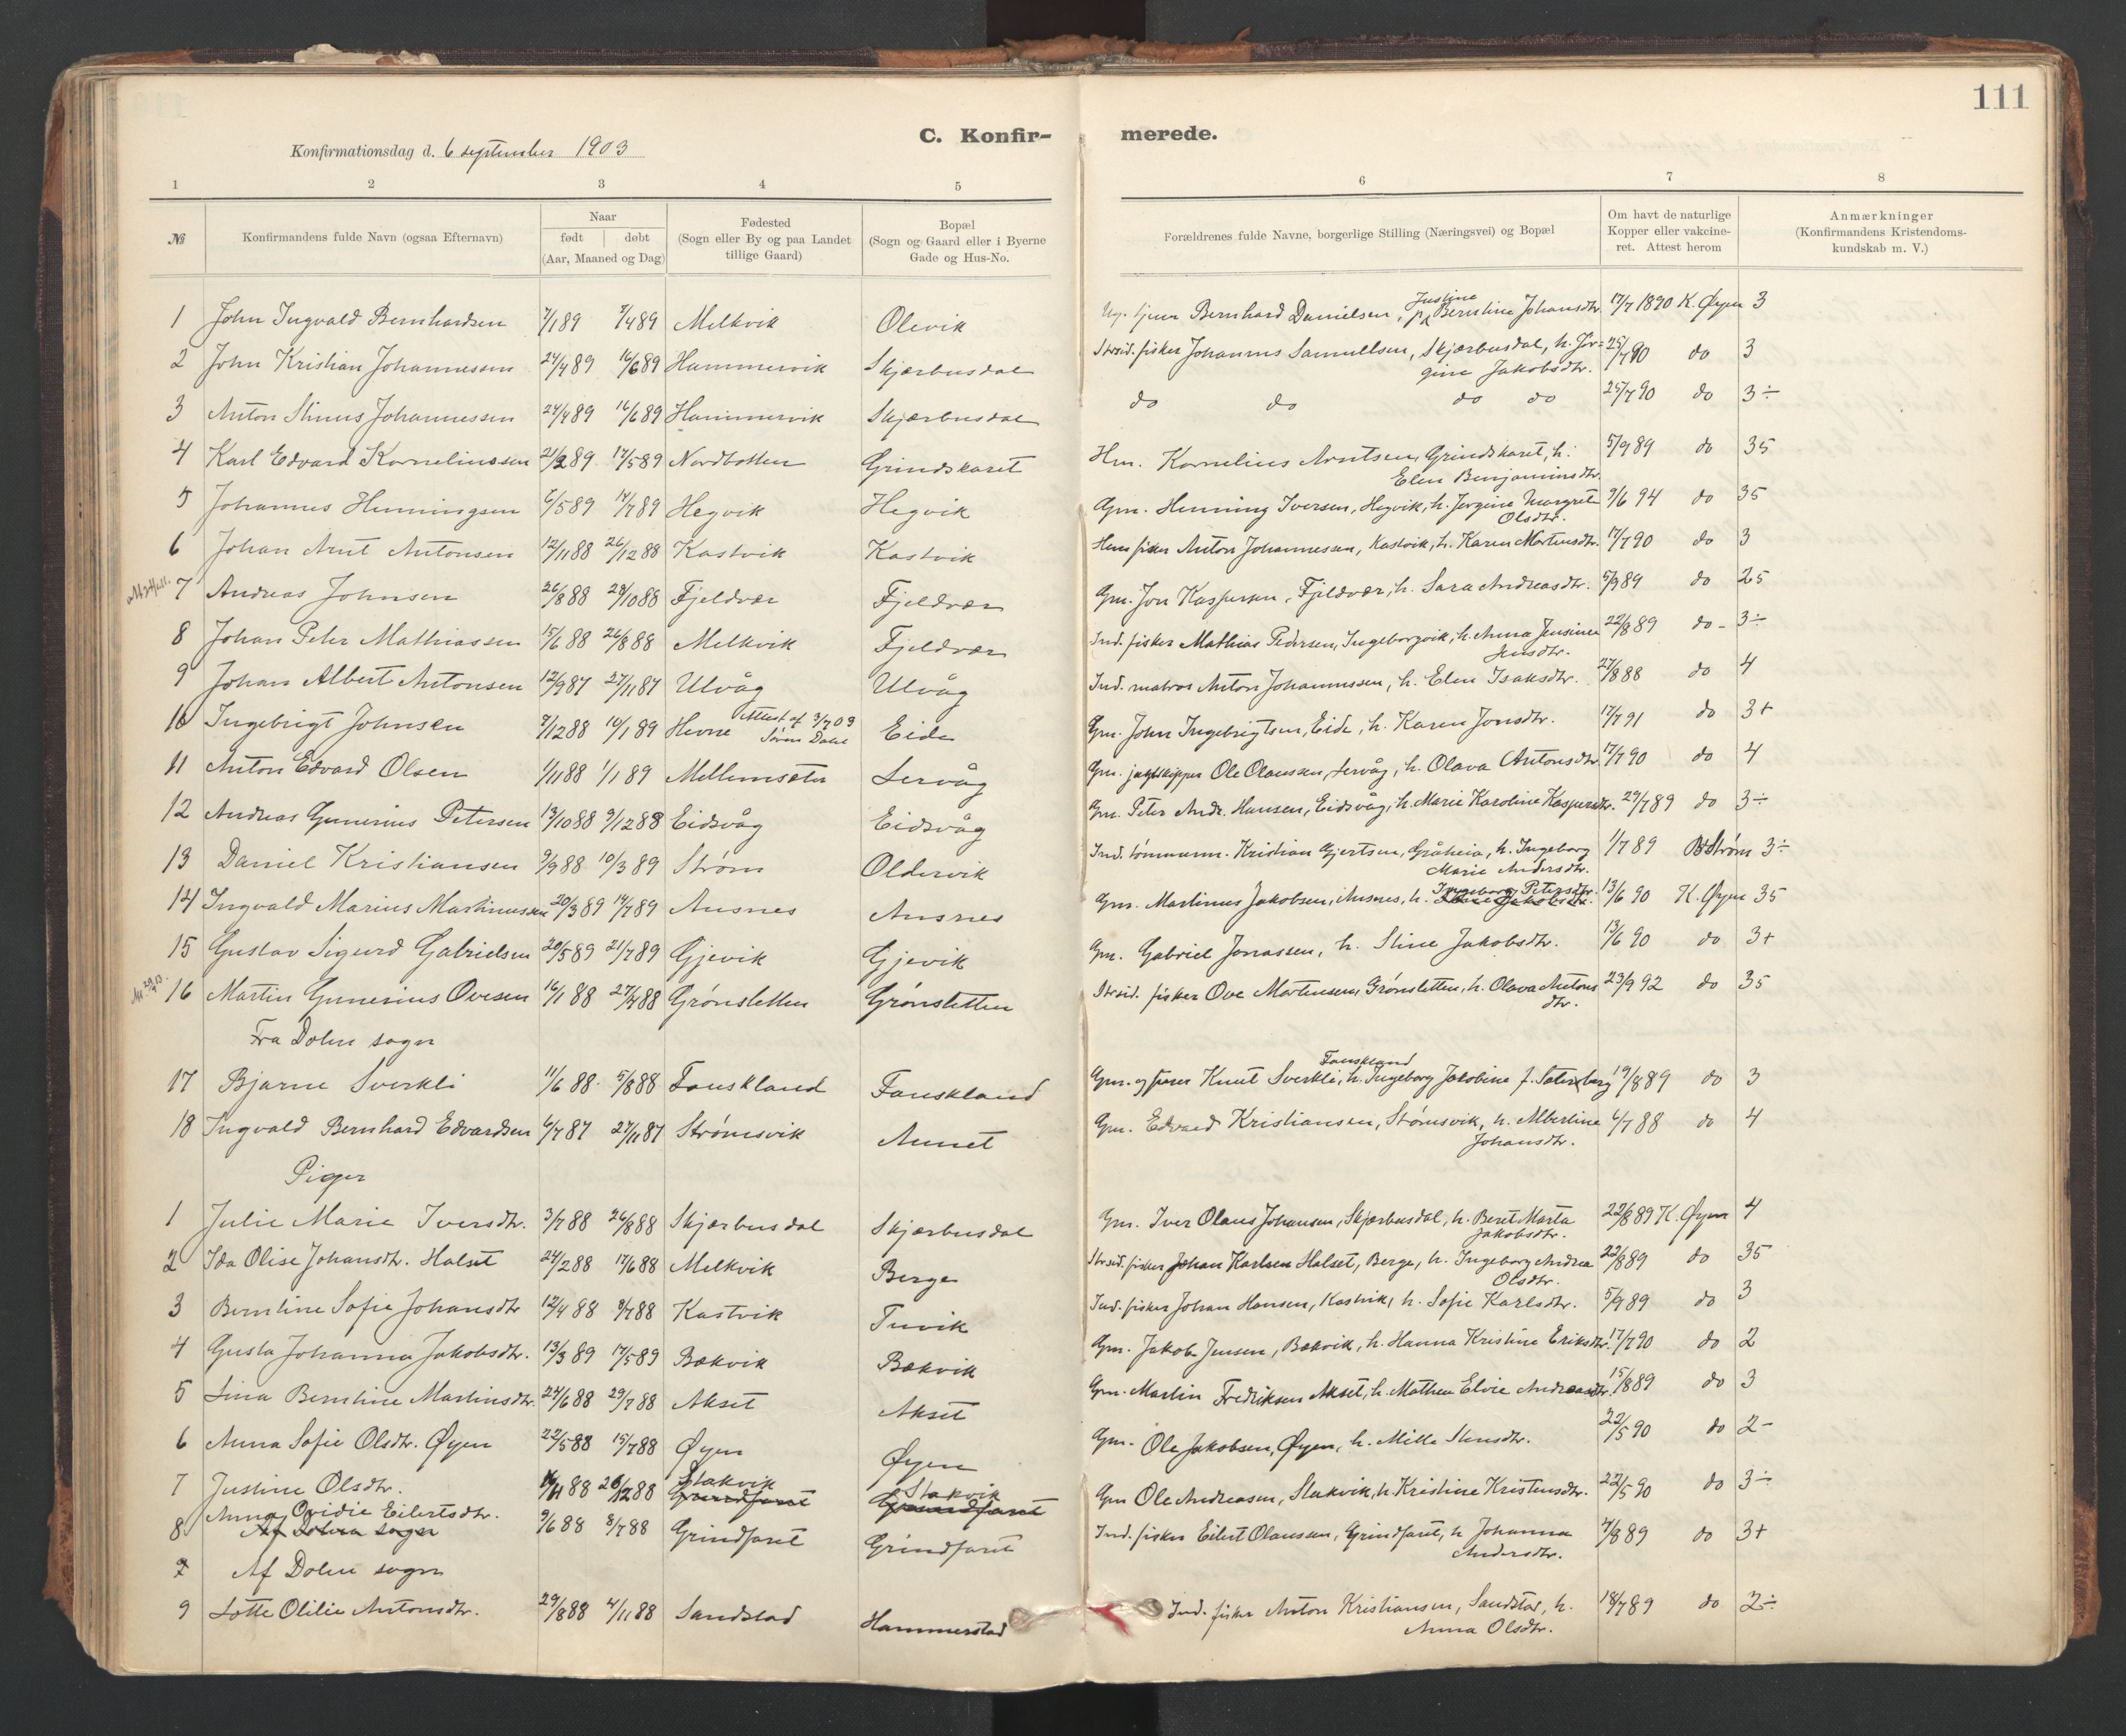 111
C. Konfir- merede.
Konfirmationsdag d. 6 september 1903
1 2 3 4 5 6 7 8
№ Konfirmandens fulde Navn (ogsaa Efternavn) Naar født døbt (Aar, Maaned og Dag) Fødested (Sogn eller By og paa Landet tillige Gaard) Bopæl (Sogn og Gaard eller i Byerne Gade og Hus-No. Forældrenes fulde Navne, borgerlige Stilling (Næringsvei) og Bopæl Om havt de naturlige Kopper eller vakcineret. Attest herom Anmærkninger (Konfirmandens Kristendomskundskab m. V.)
1 John Ingvald Bernhardsen 7/1 89 7/4 89 Melkvik Olevik Bernhard Danielsen, Justine Berntine Johansdtr. 17/7 1890 K. Øyen 3
2 John Kristian Johannessen 24/4 89 16/6 89 Hammervik Skjærbusdal Strsid. fisker Johannes Samuelsen, Skjærbusdal, h. Jør-
gine Jakobsdtr. 25/7 90 do 3
3 Anton Stinus Johannessen 24/4 89 16/6 89 Hammervik Skjærbusdal do do do do 25/7 90 do 3÷
4 Karl Edvard Korneliussen 21/2 89 17/5 89 Nordbotten Grindskaret Hm. Kornelius Arntsen, Grindskaret, h.
Elen Benjaminsdtr. 5/9 89 do 35
5 Johannes Henningsen 6/5 89 14/7 89 Hegvik Hegvik Gm. Henning Iversen, Hegvik, h. Jørgine Margrete
Olsdtr. 9/6 94 do 35
6 Johan Arnt Antonsen 12/11 88 26/12 88 Kastvik Kastvik Hm fisker Anton Johannessen, Kastvik, h. Karen Martinsdtr. 17/7 90 do 3
7 Andreas Johnsen 26/8 88 28/10 88 Fjeldvær Fjeldvær Gm. Jon Kaspersen, Fjeldvær, h. Sara Andreasdtr. 5/9 89 do 25
8 Johan Peter Mathiassen 15/6 88 26/8 88 Melkvik Fjeldvær Ind. fisker Mathias Pedersen, Ingeborgvik, h. Anna Jensine
Jensdtr. 22/8 89 do - 3÷
9 Johan Albert Antonsen 12/9 87 27/11 87 Ulvåg Ulvåg Ind. matros Anton Johannessen, h. Elen Isaksdtr. 27/8 88 do 4
10 Ingebrigt Johnsen 7/12 88 10/1 89 Hevne Attest af 3/7 03
Søren Dahl Eide Gm. John Ingebrigtsen, Eide, h. Karen Jonsdtr. 17/7 91 do 3+
11 Anton Edvard Olsen 1/11 88 1/1 89 Mellemsæter Lervåg Gm. jagtskipper Ole Olaussen, Lervåg, h. Olava Antonsdtr. 17/7 90 do 4
12 Andreas Gunerius Petersen 13/10 88 9/12 88 Eidsvåg Eidsvåg Gm. Peter Andr. Hansen, Eidsvåg, h. Marie Karoline Kaspersdtr. 29/7 89 do 3÷
13 Daniel Kristiansen 9/9 88 10/3 89 Strøm Oldervik Ind. tømmerm. Kristian Gjertsen, Gråheia, h. Ingeborg
Marie Andersdtr. 1/7 89 Strøm 3÷
14 Ingvald Marius Martinussen 20/3 89 14/7 89 Ansnes Ansnes Gm. Martinus Jakobsen, Ansnes, h. Ingeborg Petersdtr. 13/6 90 K. Øyen 35
15 Gustav Sigurd Gabrielsen 20/5 89 21/7 89 Gjevik Gjevik Gm. Gabriel Jonassen, h. Stine Jakobsdtr. 13/6 90 do 3+
16 Martin Gunerius Ovesen 16/1 88 27/4 88 Grønsletten Grønsletten Strsid. fisker Ove Mortensen, Grønsletten, h. Olava Antons
dtr. 23/9 92 do 35
Fra Dolm sogn
17 Bjarne Sverkli 11/6 88 5/8 88 Fauskland Fauskland Gm. og Knut Sverkli, Fauskland h. Ingeborg Jakobine f. Sætersberg 19/8 89 do 3
18 Ingvald Bernhard Edvardsen 6/7 87 27/11 87 Strømsvik Aunet Gm. Edvard Kristiansen, Strømsvik, h. Albertine
Johansdtr. 6/7 88 do 4
Piger
1 Julie Marie Iversdtr. 3/7 88 26/8 88 Skjærbusdal Skjærbusdal Gm. Iver Olaus Johansen, Skjærbusdal, h. Beret Marta
Jakobsdtr. 22/8 89 K. Øyen 4
2 Ida Olise Johansdtr. Halset 24/2 88 17/6 88 Melkvik Berge Strsid. fisker Johan Karlsen Halset, Berge, h. Ingeborg Andrea
Olsdtr. 22/8 89 do 35
3 Berntine Sofie Johansdtr 12/4 88 8/7 88 Kastvik Tuvik Ind. fisker Johan Hansen, Kastvik, h. Sofie Karlsdtr. 5/9 89 do 3
4 Gusta Johanna Jakobsdtr. 13/3 89 17/5 89 Bækvik Bækvik Gm. Jakob Jensen, Bækvik, h. Hanna Kristine Eriksdtr. 17/7 90 do 2
5 Lina Berntine Martinsdtr. 24/6 88 29/7 88 Akset Akset Gm. Martin Fredriksen Akset, h. Mathea Elvie Andreasdtr. 15/8 89 do 3
6 Anna Sofie Olsdtr. Øyen 22/5 88 15/7 88 Øyen Øyen Gm. Ole Jakobsen, Øyen, h. Mille Stensdtr. 22/5 90 do 2-
7 Justine Olsdtr. 11/11 88 26/12 88 Stakvik Stakvik Gm Ole Andreasen, Stakvik, h. Kristine Kristensdtr. 22/5 90 do 3÷
8 Anna Ovidie Eilertsdtr. 9/6 88 8/7 88 Grindfaret Grindfaret Ind. fisker Eilert Olaussen, Grindfaret, h Johanna
Andersdtr. 7/8 89 do 3+
Af Dolm sogn
9 Lotte Olilie Antonsdtr. 29/8 88 4/11 88 Sandstad Hammerstad Ind. fisker Anton Kristiansen, Sandstad, h.
Anna Olsdtr. 18/7 89 do 2÷